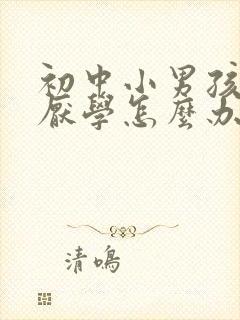 初中小男孩
厭學怎麼办
清鳴